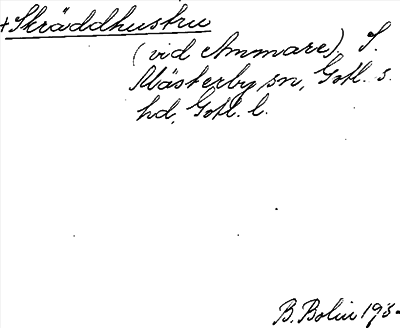 +Skräddhustru
(vid Ammare). S.
Mästerby sn, Gotl. s.
hd, Gotl. l.
B. Bolin 193